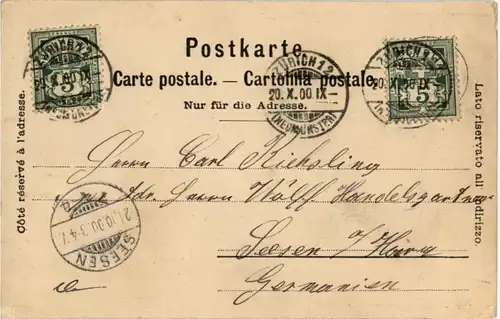 Postkarte.
Carte postale. — Cartolina postale.
Nur für die Adresse.
Côté réservé à l'adresse.
Lato riservato all' indirizzo.
ZÜRICH 12
20. X. 00 IX
(NEUMÜNSTER)
ZÜRICH 12
20. X. 00 IX–
(NEUMÜNSTER)
ZÜRICH 12
20. X. 00 IX
5
5
SEESEN
Herrn Carl
Herrn Wolff Handelsgärtner
Seesen a/Harz
Germanien